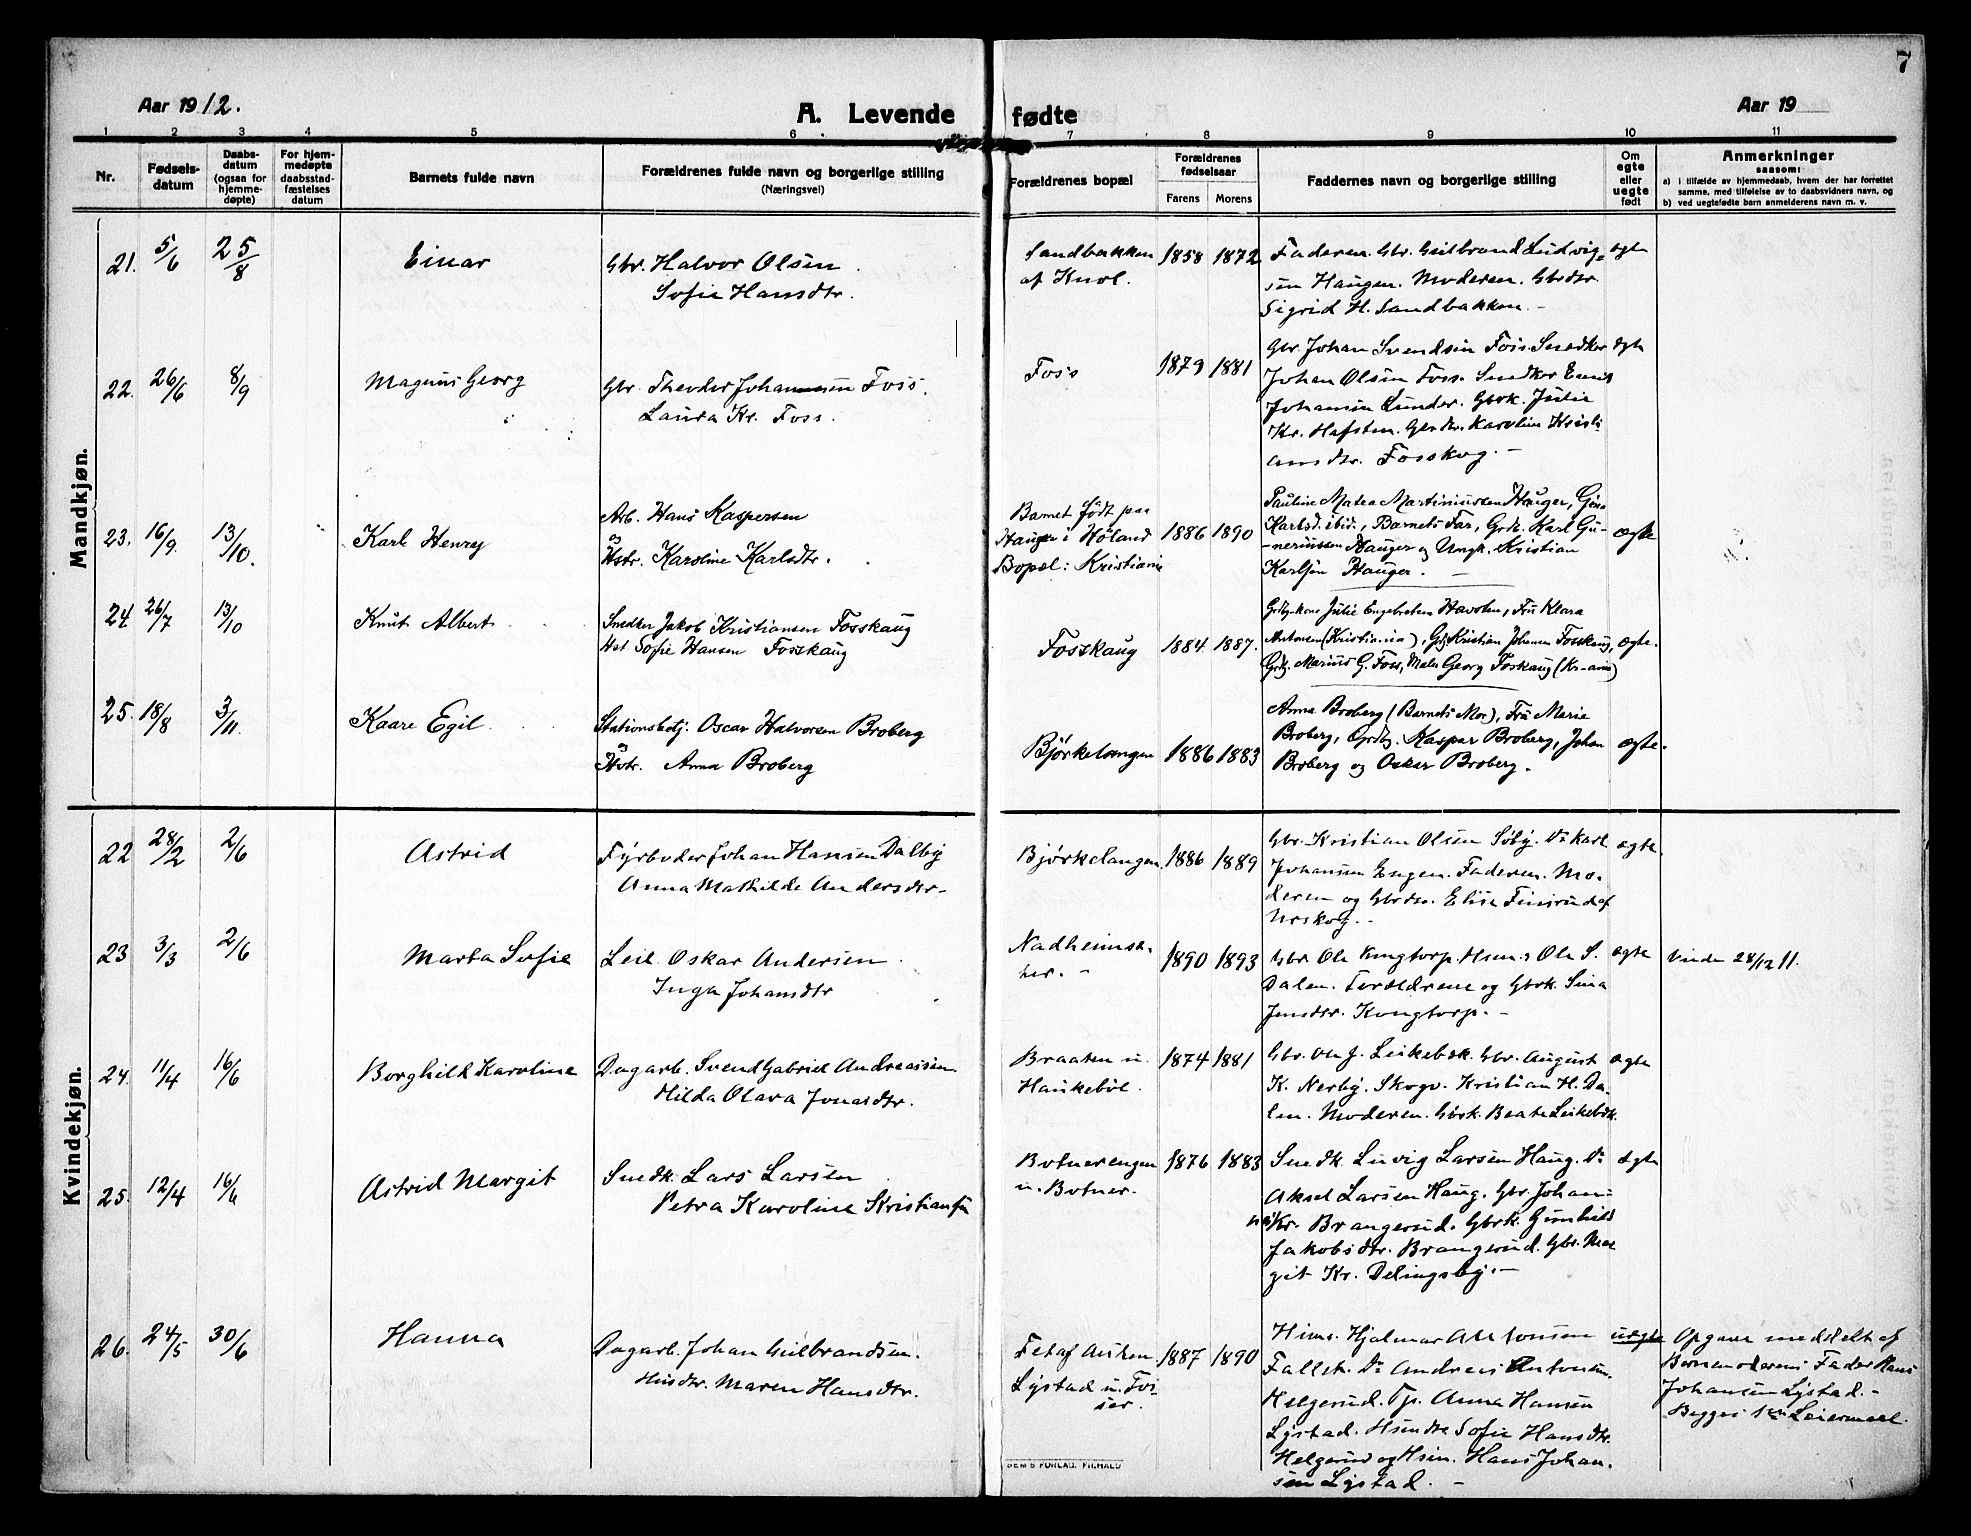 7
Aar 1912.
A. Levende fødte
Aar 19
1 2 3 4 5 6 7 8 9 10 11
Nr.
Fødsels-
datum
Daabs-
datum
(ogsaa for
hjemme-
døpte)
For hjem-
medøpte
daabsstad-
fæstelses
datum
Barnets fulde navn
Forældrenes fulde navn og borgerlige stilling
(Næringsvei)
Forældrenes bopæl
Forældrenes
fødselsaar
Farens Morens
Faddernes navn og borgerlige stilling
Om
egte
eller
uegte
født
Anmerkninger
saasom:
a) i tilfælde av hjemmedaab, hvem der har forrettet
samme, med tilføielse av to daabsvidners navn, og
b) ved uegtefødte barn anmelderens navn m. v.
Mandkjøn.
21. 5/6 25/8 Einar
Gbr. Halvor Olsen
Sofie Hansdtr.
Sandbakken
af Knol.
1858 1872
Faderen. Gbr. Gulbrand Ludvig=
sen Haugen. Moderen. Gbrdtr.
Sigrid H. Sandbakken. -
egte
22. 26/6 8/9 Magnus Georg
Gbr. Theodor Johannesen Foss.
Laura Kr. Foss.
Foss
1879 1881
Gbr. Johan Svendsen Foss. Snedker
Johan Olsen Foss. Snedker Emil
Johansen Lunder. Gbrk. Julie
Kr. Hafsten. Gbrdtr. Karoline Kristi-
ansdtr. Fosskog. -
egte
23. 16/9. 13/10. Karl Henry
Arb. Hans Kaspersen
og
Hstr. Karoline Karlsdtr.
Barnet født paa
Hauger i Høland
Bopæl: Kristiania
1886 1890
Pauline Matea Martiniussen Hauger, Gina
Karlsd. ibid., Barnets Far, Grdb. Karl Gu-
neriussen Hauger og Ungk. Kristian
Karlsen Hauger. -
ægte
24 26/7 13/10 Knut Albert
Snedker Jakob Kristiansen Fosskaug
Hst Sofie Hansen Fosskaug
Fosskaug
1884 1887.
Grdbr.kone Julie Engebretsen Havsten, Fru Klara
Antonsen (Kristiania), Grdb. Kristian Johansen Fosskaug,
Grdb. Marius G. Foss, Maler Georg Foskaug (Kr-ania)
ægte.
25. 18/8 3/11. Kaare Egil
Stationsbetj. Oscar Halvorsen Broberg
og
Hstr. Anna Broberg
Bjørkelangen
1886 1883
Anna Broberg (Barnets Mor), Fru Marie
Broberg, Grdbr. Kaspar Broberg, Johan
Broberg og Oskar Broberg.
ægte.
Kvindekjøn.
22 28/2 2/6 Astrid
Fyrbøder Johan Hansen Dalby
Anna Mathilde Andersdtr.
Bjørkelangen.
1886 1889
Gbr. Kristian Olsen Søby. Do Karl
Johansen Engen. Faderen. Mo-
deren og Gbrdtr. Elise Finsrud af
Urskog. -
egte.
23 3/3 2/6 Marta Sofie
Leil. Oskar Andersen
Inga Johansdtr
1890 1893
Gbr Ole Kongtorp. Hsm.s Ole S.
Dalen. Forældrene og Gbrk. Sina
Jensdtr. Kongtorp. -
egte
Viede 28/12 11.
24. 11/4 16/6 Borghild Karoline
Dagarb. Svend Gabriel Andreassen
Hilda Olava Jonasdtr.
Braaten u.
Haukebøl.
1874 1881
Gbr. Ole J. Leikebæk. Gbr. August
K. Nerby. Skogv. Kristian H. Da-
len. Moderen. Gbrk. Beate Leikebæk.
egte
25. 12/4 16/6 Astrid Margit
Snedk. Lars Larsen
Petra Karoline Kristiansen
Botnerengen
u. Botner.
1876 1883
Snedk. Luvig Larsen Haug. Do
Aksel Larsen Haug. Gbr. Johan-
Kr. Brangerud. Gbrk. Gunhild
Jakobsdtr. Brangerud. Gbr. Mar
git Kr. Delingsby. -
egte
26. 24/5 30/6 Hanna
Dagarb. Johan Gulbrandsen.
Husdtr. Maren Hansdtr.
Fet af Aursk.
Lystad u. Fos-
ser.
1887 1890
Hsms. Hjalmar Antonsen
Fallet. Do Andreas Antonsen.
Helgerud. Tp. Anna Hansen
Lystad. Hsmdtr Sofie Hansdtr.
Helgerud og Hsm. Hans Johan.
sen Lystad. -
uegte
Opgave meddelt af
Barnemoderens Fader Hans
Johansen Lystad. -
Begges 1ste Leiermaal.
SEM'S FORLAG. FR.HALD